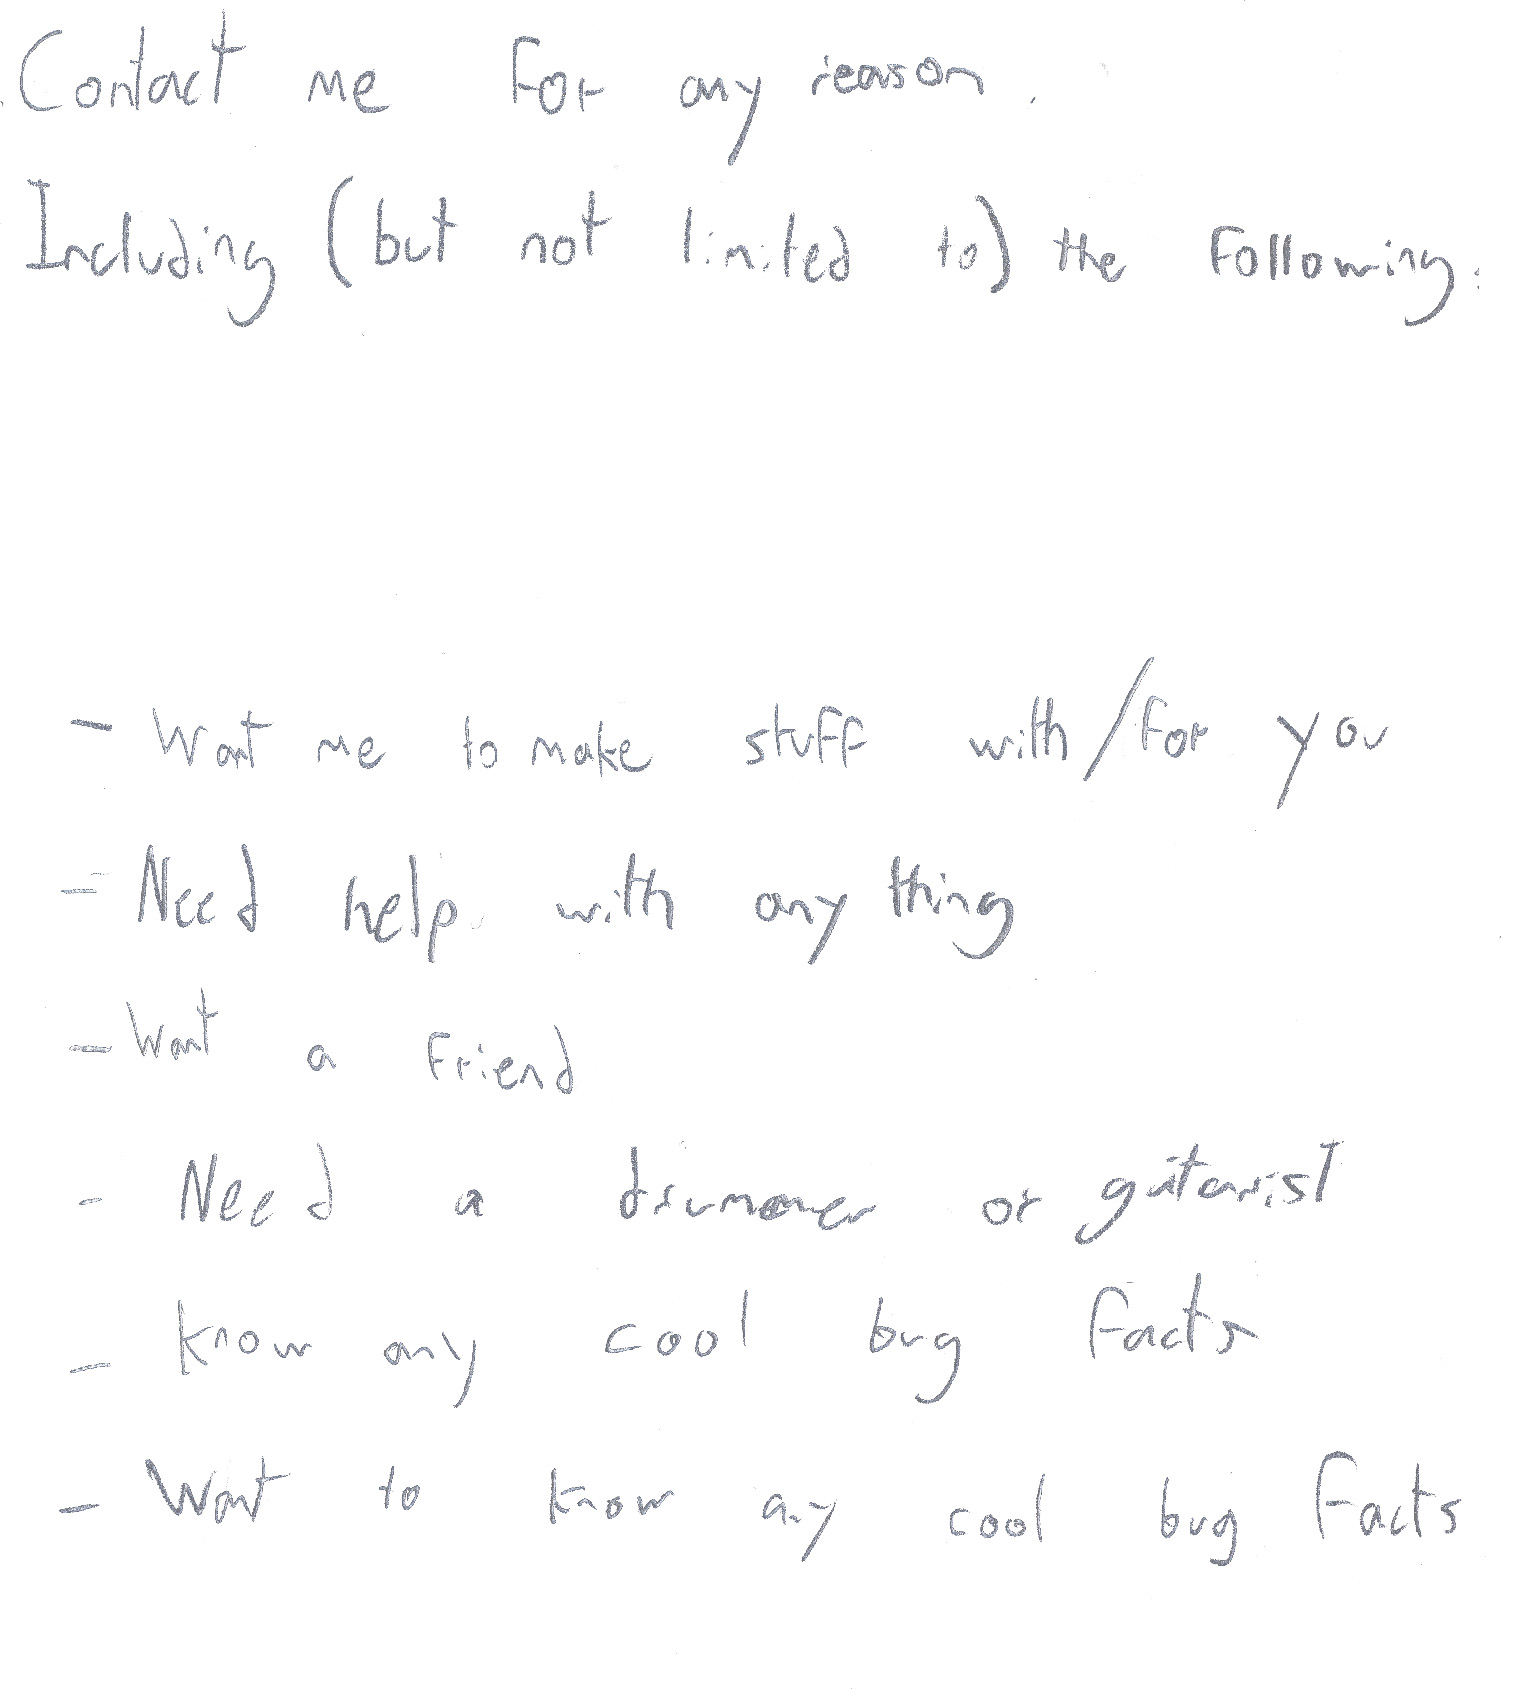 Contact me For any reason.
Including (but not limited to) the Following:
- Want me to make stuff with/For you
- Need help with any thing
- Want a Friend
- Need a drummer or guitarist
- Know any cool bug facts
- Want to know any cool bug Facts